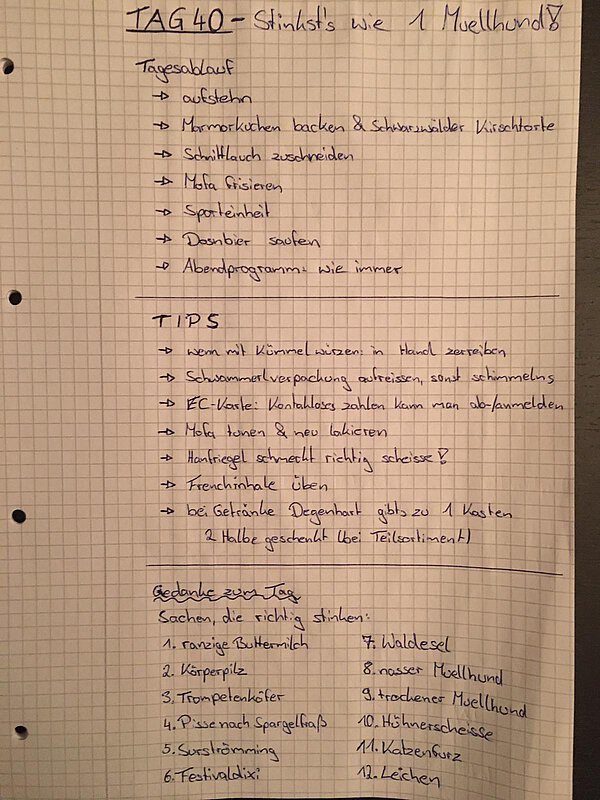 TAG 40 - Stinkst's wie 1 Muellhund!
Tagesablauf
→ aufstehn
→ Marmorkuchen backen & Schwarzwälder Kirschtorte
→ Schnittlauch zuschneiden
→ Mofa frisieren
→ Sporteinheit
→ Dosnbier saufen
→ Abendprogramm: wie immer
TIPS
→ wenn mit Kümmel würzen: in Hand zerreiben
→ Schwammerlverpackung aufreissen, sonst schimmelns
→ EC-Karte: Kontaktloses zahlen kann man ab-/anmelden
→ Mofa tunen & neu lakieren
→ Hanfriegel schmeckt richtig scheisse!
→ Frenchinhale üben
→ bei Getränke Degenhart gibts zu 1 Kasten
2 Halbe geschenkt (bei Teilsortiment)
Gedanke zum Tag
Sachen, die richtig stinken:
1. ranzige Buttermilch
2. Körperpilz
3. Trompetenkäfer
4. Pisse nach Spargelfraß
5. Surströmming
6. Festivaldixi
7. Waldesel
8. nasser Muellhund
9. trockener Muellhund
10. Hühnerscheisse
11. Katzenfurz
12. Leichen